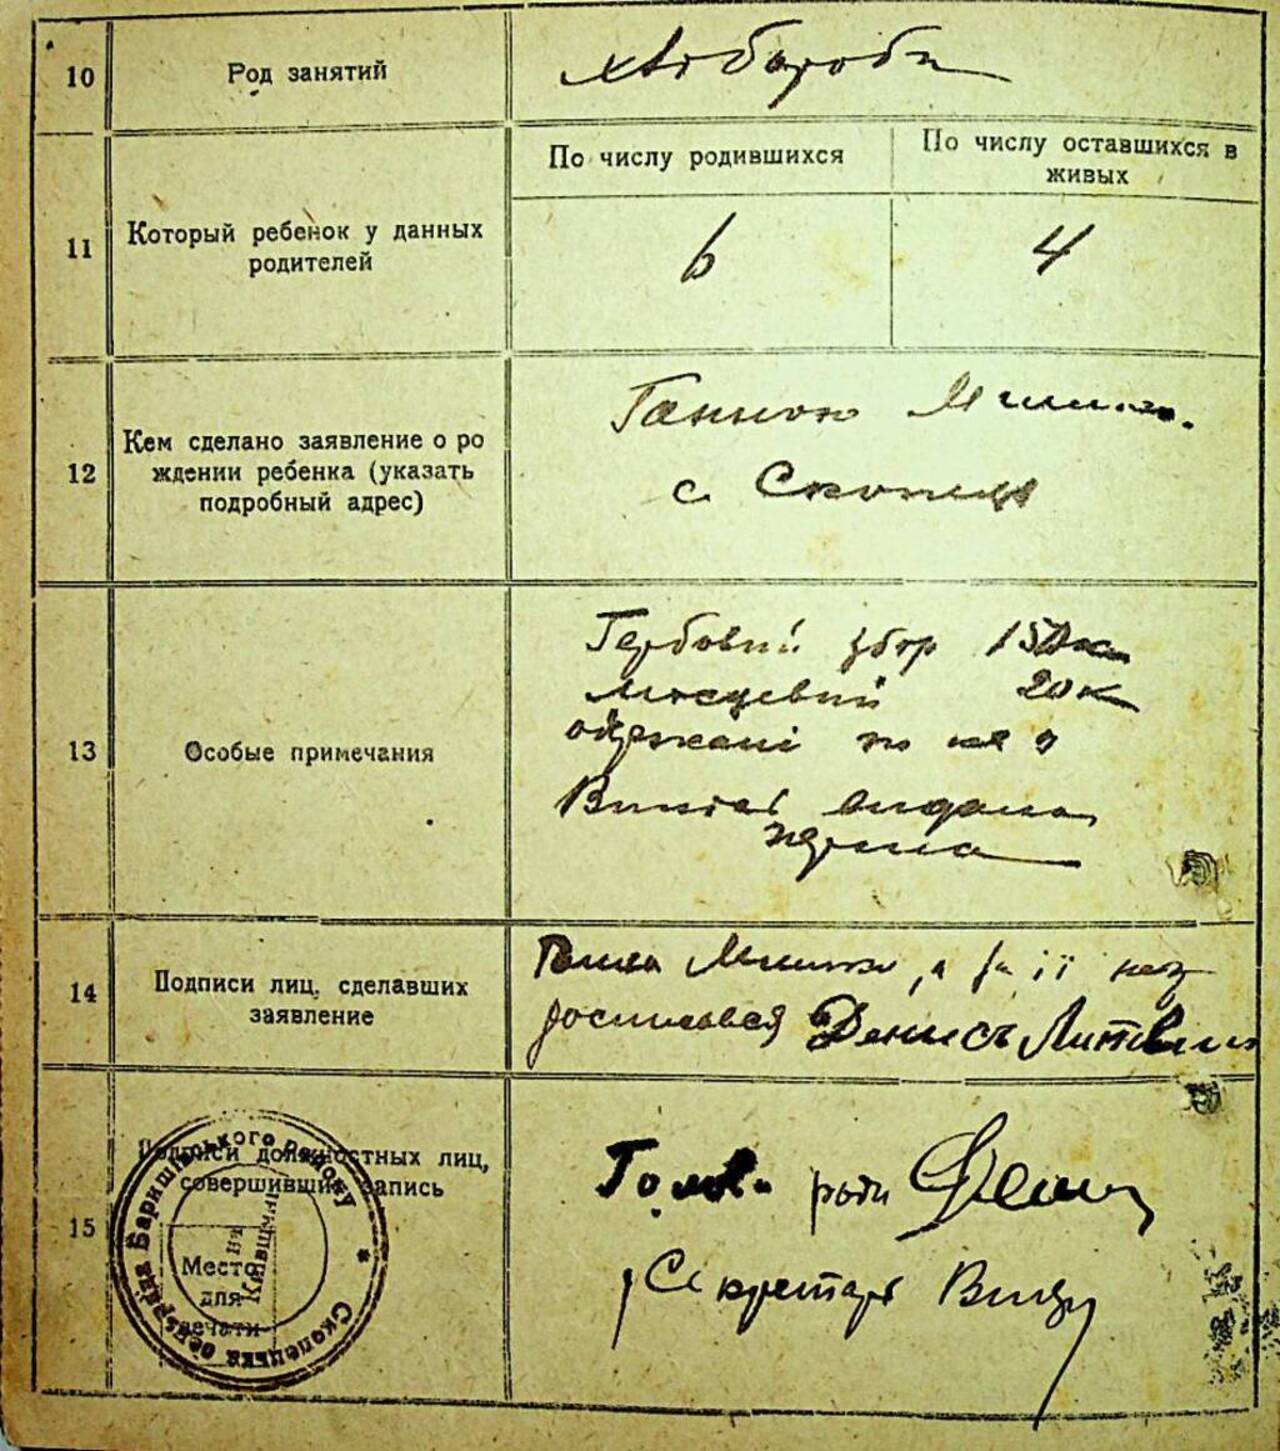 10 Род занятий
хлібороби
11 Который ребенок у данных
родителей
По числу родившихся
По числу оставшихся в
живых
6 4
12 Кем сделано заявление о ро
ждении ребенка (указать
подробный адрес)
Ганною
с. Скопці
13 Особые примечания
Гербовий збір 15
місцевий 20 к
одержані по кв
видана
14 Подписи лиц, сделавших
заявление
Ганна а за її
росписався Денисъ Литвин
15 Подписи должностных лиц,
совершивших запись
Место
для
печати
Скопецька сільрада Баришівського району
на Київщині
Голова ради
Секретарь